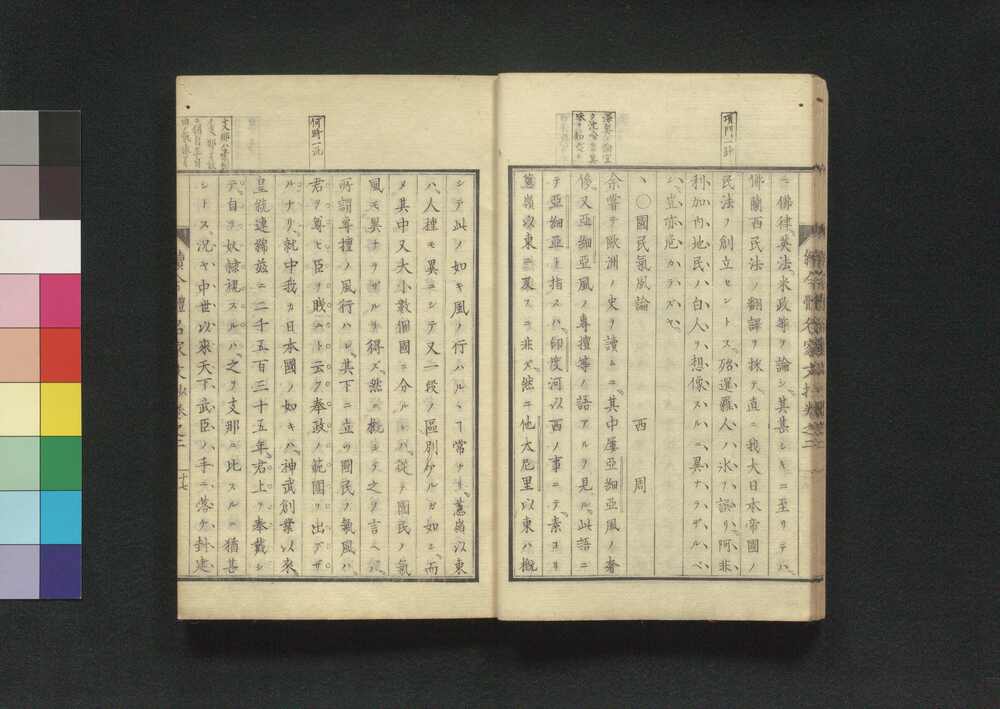 頂門一針
ニ佛律、英法、米政等ヲ論シ、其甚シキニ至リテハ、
佛蘭西民法ノ翻譯ヲ採テ、直ニ我大日本帝國ノ
民法ヲ創立セントス、殆暹羅人ハ氷ヲ誤リ、阿非
利加内地民ハ白人ヲ想像スルニ、異ナラザルベ
シ、豈亦危カラズヤ、
〇國民氣風論 西周
余嘗テ歐洲ノ史ヲ讀ムニ、其中屢亞細亞風ノ奢
侈、又亞細亞風ノ專擅等ノ語アルヲ見ル、此語ニ
テ亞細亞ト指スハ、印度河以西ノ事ニテ、素ヨリ
葱嶺以東ニ及スニ非ズ、然ニ他太尼里以東ハ概
シテ此ノ如キ風ノ行ハルヽヿ常ナリ、葱嶺以東
ハ、人種モ異ニシテ又一段ノ區別アルガ如ニ、而
メ其中又大小數個國ニ分ルレバ、從テ國民ノ氣
風モ異ナラザルヲ得ズ、然ニ概シテ之ヲ言ヘバ、
所謂專擅ノ風行ハレ、其下ニ立ツ國民ノ氣風ハ、
君ヲ尊ヒ臣ヲ賤ムト云フ奉政ノ範圍ヲ出デザ
ルナリ、就中我カ日本國ノ如キハ、神武創業以來、
皇統連緜茲ニ二千五百三十五年、君上ヲ奉戴シ
テ、自ヲ奴隷視スルハ、之ヲ支那ニ比スルニ猶甚
シトス、況ヤ中世以來天下武臣ノ手ニ落ケ、封建
何時一洗
續今體名家文抄卷之三
十七